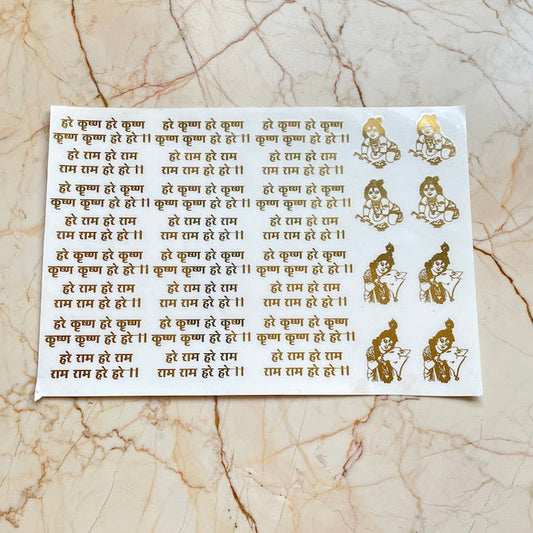 हरे कृष्ण हरे कृष्ण
कृष्ण कृष्ण हरे हरे ।।
हरे राम हरे राम
राम राम हरे हरे ।।
हरे कृष्ण हरे कृष्ण
कृष्ण कृष्ण हरे हरे ।।
हरे राम हरे राम
राम राम हरे हरे ।।
हरे कृष्ण हरे कृष्ण
कृष्ण कृष्ण हरे हरे ।।
हरे राम हरे राम
राम राम हरे हरे ।।
हरे कृष्ण हरे कृष्ण
कृष्ण कृष्ण हरे हरे ।।
हरे राम हरे राम
राम राम हरे हरे ।।
हरे कृष्ण हरे कृष्ण
कृष्ण कृष्ण हरे हरे ।।
हरे राम हरे राम
राम राम हरे हरे ।।
हरे कृष्ण हरे कृष्ण
कृष्ण कृष्ण हरे हरे ।।
हरे राम हरे राम
राम राम हरे हरे ।।
हरे कृष्ण हरे कृष्ण
कृष्ण कृष्ण हरे हरे ।।
हरे राम हरे राम
राम राम हरे हरे ।।
हरे कृष्ण हरे कृष्ण
कृष्ण कृष्ण हरे हरे ।।
हरे राम हरे राम
राम राम हरे हरे ।।
हरे कृष्ण हरे कृष्ण
कृष्ण कृष्ण हरे हरे ।।
हरे राम हरे राम
राम राम हरे हरे ।।
हरे कृष्ण हरे कृष्ण
कृष्ण कृष्ण हरे हरे ।।
हरे राम हरे राम
राम राम हरे हरे ।।
हरे कृष्ण हरे कृष्ण
कृष्ण कृष्ण हरे हरे ।।
हरे राम हरे राम
राम राम हरे हरे ।।
हरे कृष्ण हरे कृष्ण
कृष्ण कृष्ण हरे हरे ।।
हरे राम हरे राम
राम राम हरे हरे ।।